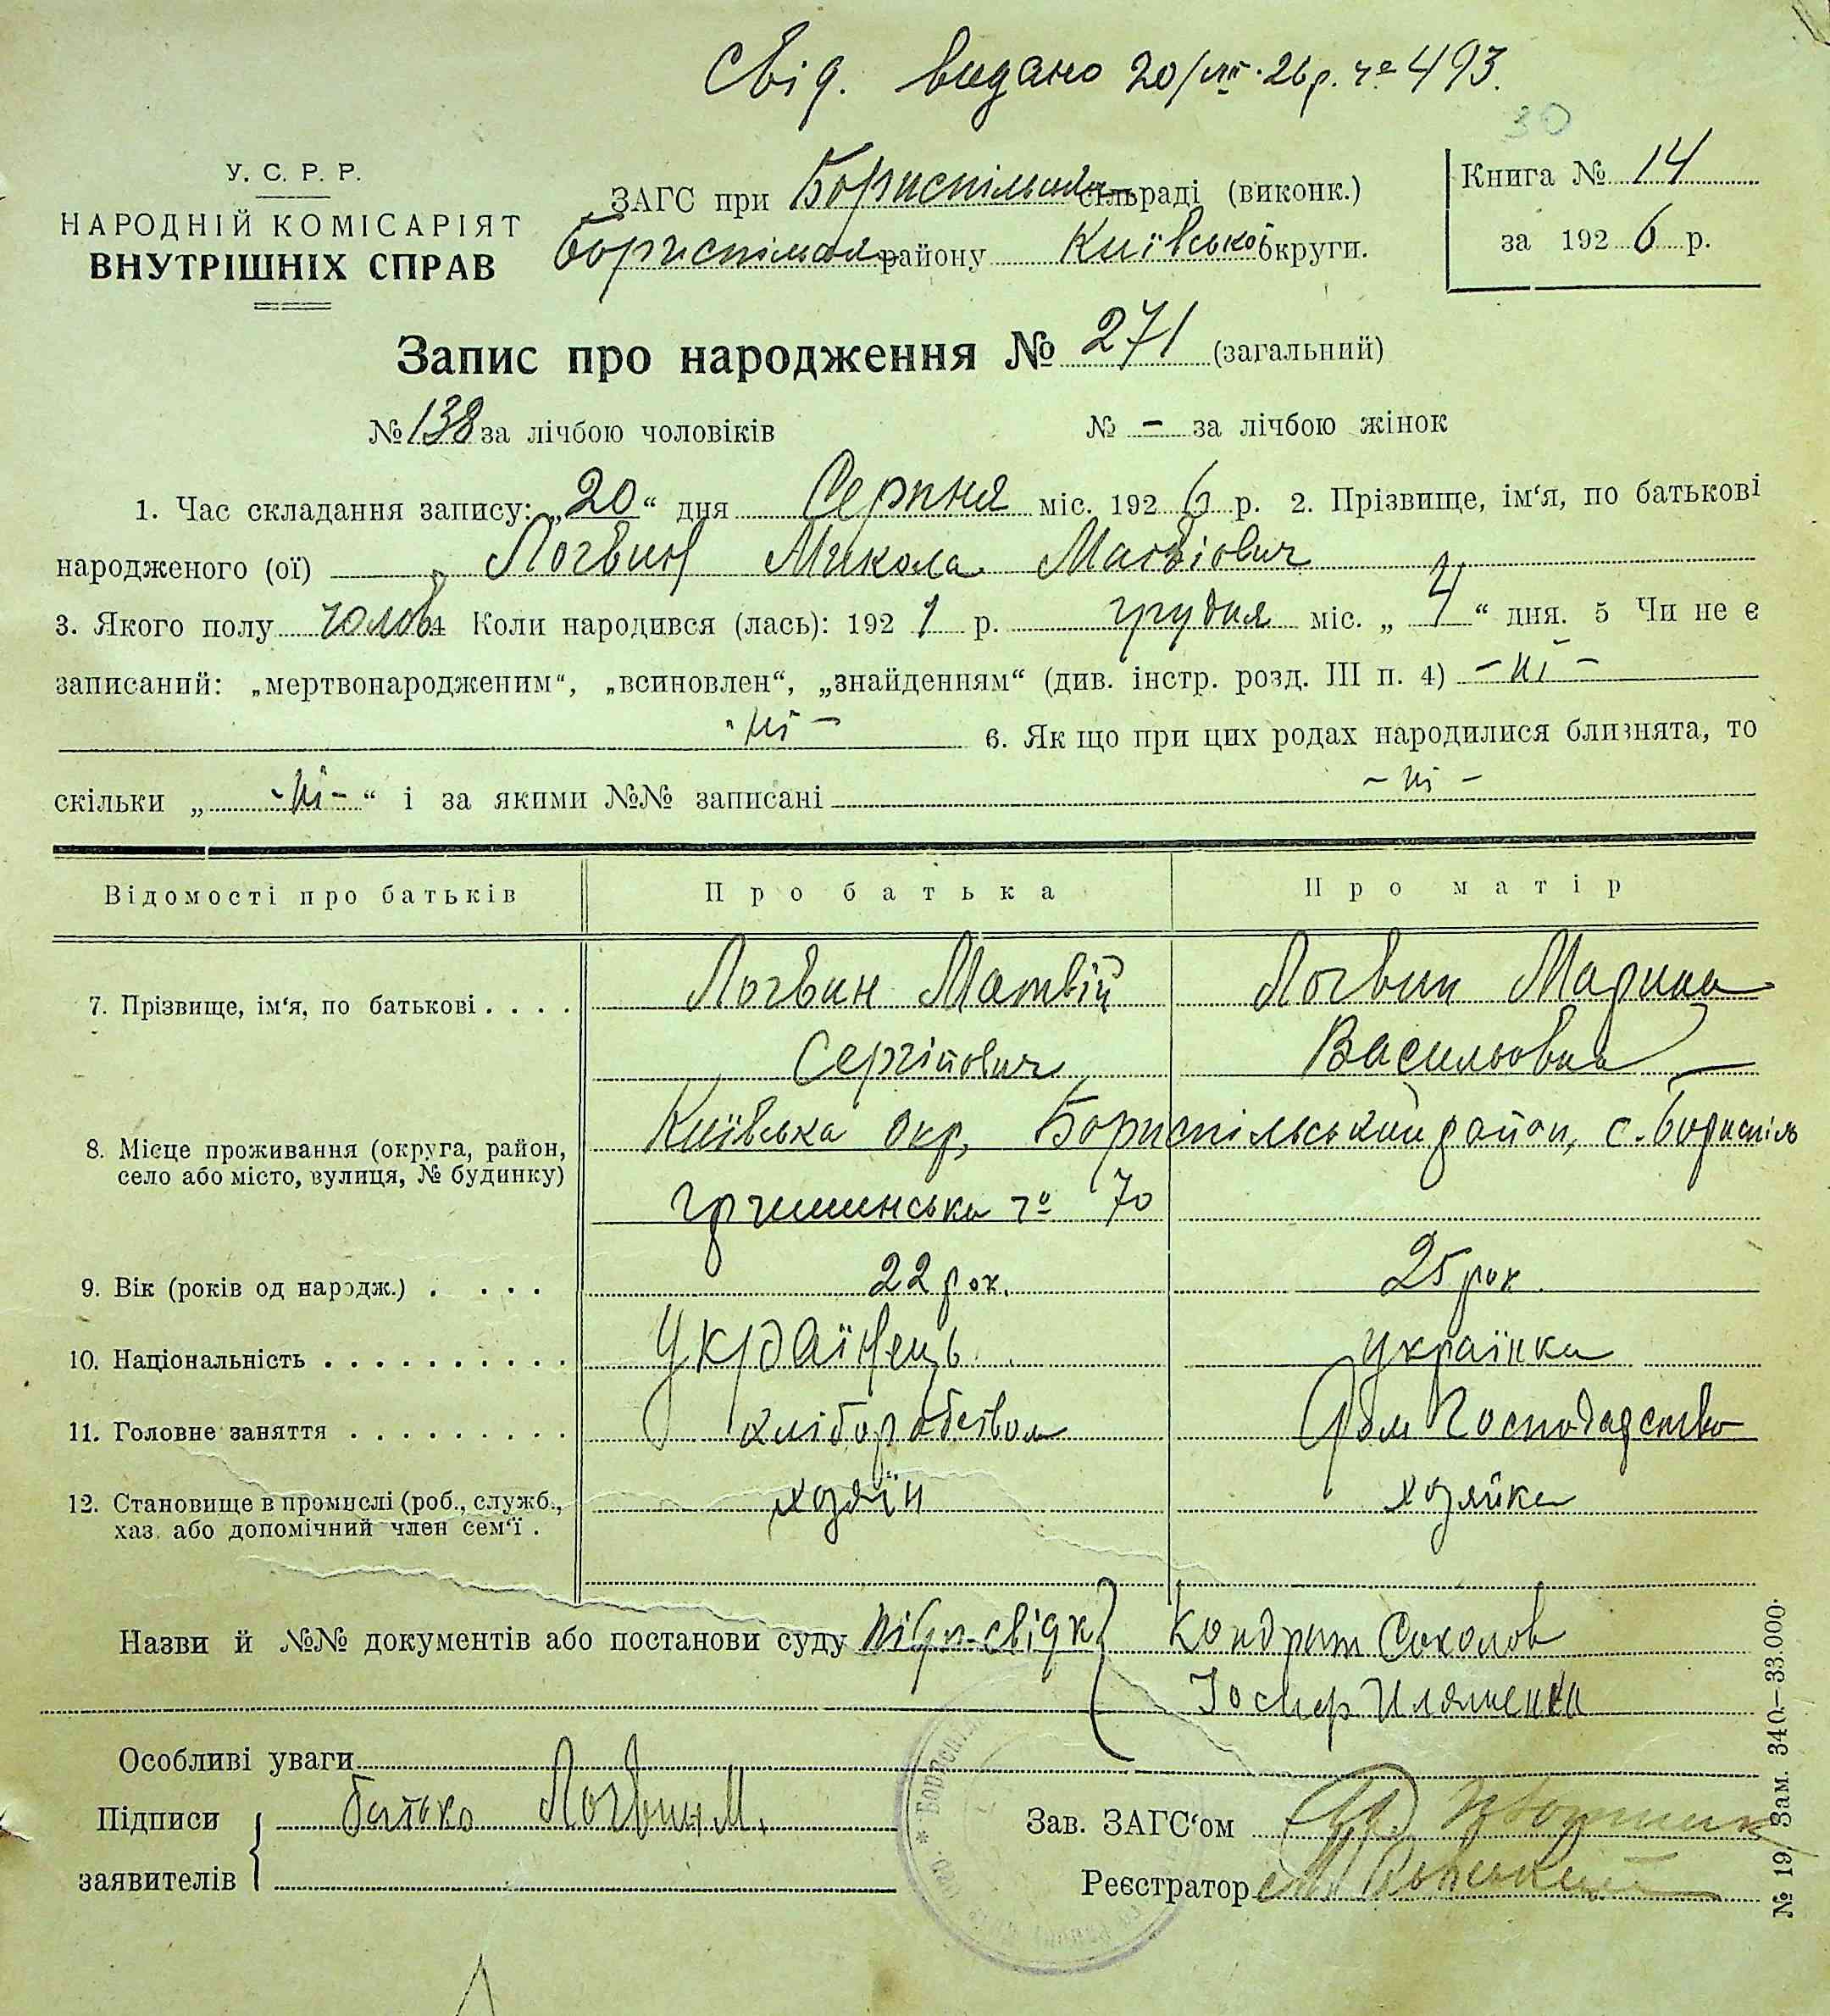 Свід. видано 20/VIII. 26 р. № 493.
30
У. С. Р. Р.
НАРОДНІЙ КОМІСАРІЯТ
ВНУТРІШНІХ СПРАВ
ЗАГС при Бориспільськ сільраді (виконк.)
Бориспільськ району Київської округи.
Книга № 14
за 192 6 р.
Запис про народження № 271 (загальний)
№ 138 за лічбою чоловіків № – за лічбою жінок
1. Час складання запису: „20“ дня Серпня міс. 192 6 р. 2. Прізвище, ім‘я, по батькові
народженого (ої) Логвин Микола Матвіович
3. Якого полу чолов. 4 Коли народився (лась): 192 1 р. грудня міс. „ 4 “ дня. 5 Чи не є
записаний: „мертвонародженим“, „всиновлен“, „знайденням“ (див. інстр. розд. III п. 4) – ні –
- ні – 6. Як що при цих родах народилися близнята, то
скільки „ - ні - “ і за якими №№ записані – ні –
Відомості про батьків Про батька Про матір
7. Прізвище, ім‘я, по батькові . . . . Логвин Матвій Логвин Марина
Сергійович Васильовна
8. Місце проживання (округа, район, Київська окр, Бориспільський район, с. Бориспіль
село або місто, вулиця, № будинку)
№ 70
9. Вік (років од народж.) . . . . 22 рок. 25 рок.
10. Національність . . . . . . . . . . Українець українка
11. Головне заняття . . . . . . . . . хліборобством Дом Господарство
12. Становище в промислі (роб., служб., хозяїн хозяйка
хаз. або допомічний член сем‘ї .
Назви й №№ документів або постанови суду свідк Кондрат Соколов
Особливі уваги
Підписи батько Логвин М.
заявителів
Зав. ЗАГС‘ом
Реєстратор
№ 19 Зам. 340—33.000.